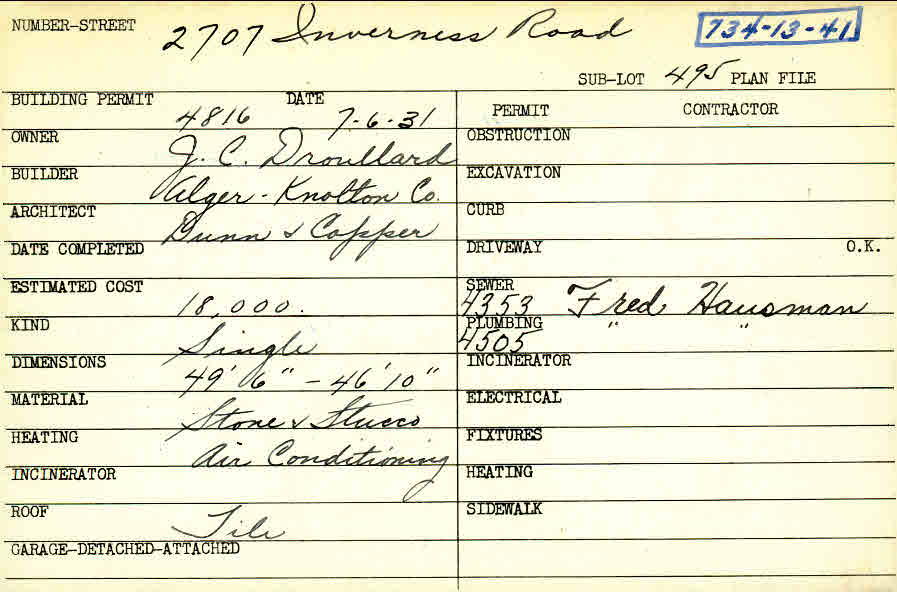 NUMBER-STREET 2707 Inverness Road 734-13-41
SUB-LOT 495 PLAN FILE
BUILDING PERMIT 4816 DATE 7-6-31
OWNER J. C. Droullard
BUILDER Alger-Knolton Co.
ARCHITECT Dunn & Copper
DATE COMPLETED
ESTIMATED COST 18,000.
KIND Single
DIMENSIONS 49' 6" - 46' 10"
MATERIAL Stone & Stucco
HEATING Air Conditioning
INCINERATOR
ROOF Tile
GARAGE-DETACHED-ATTACHED
PERMIT CONTRACTOR
OBSTRUCTION
EXCAVATION
CURB
DRIVEWAY O.K.
SEWER 4353 Fred Hausman
PLUMBING 4505 " "
INCINERATOR
ELECTRICAL
FIXTURES
HEATING
SIDEWALK